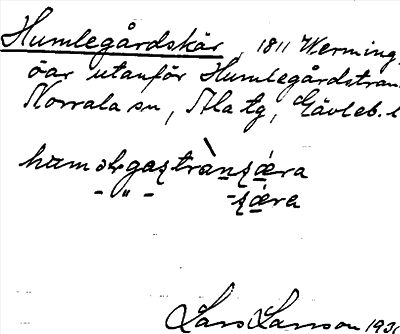 Humlegårdskär, 1811 Werming,
öar utanför Humlegårdstran
Norrala sn, Ala tg, Gävleb. l
humələgaṣtrànṣǽra
- " - -ṣǽra
Lars Larsson 193